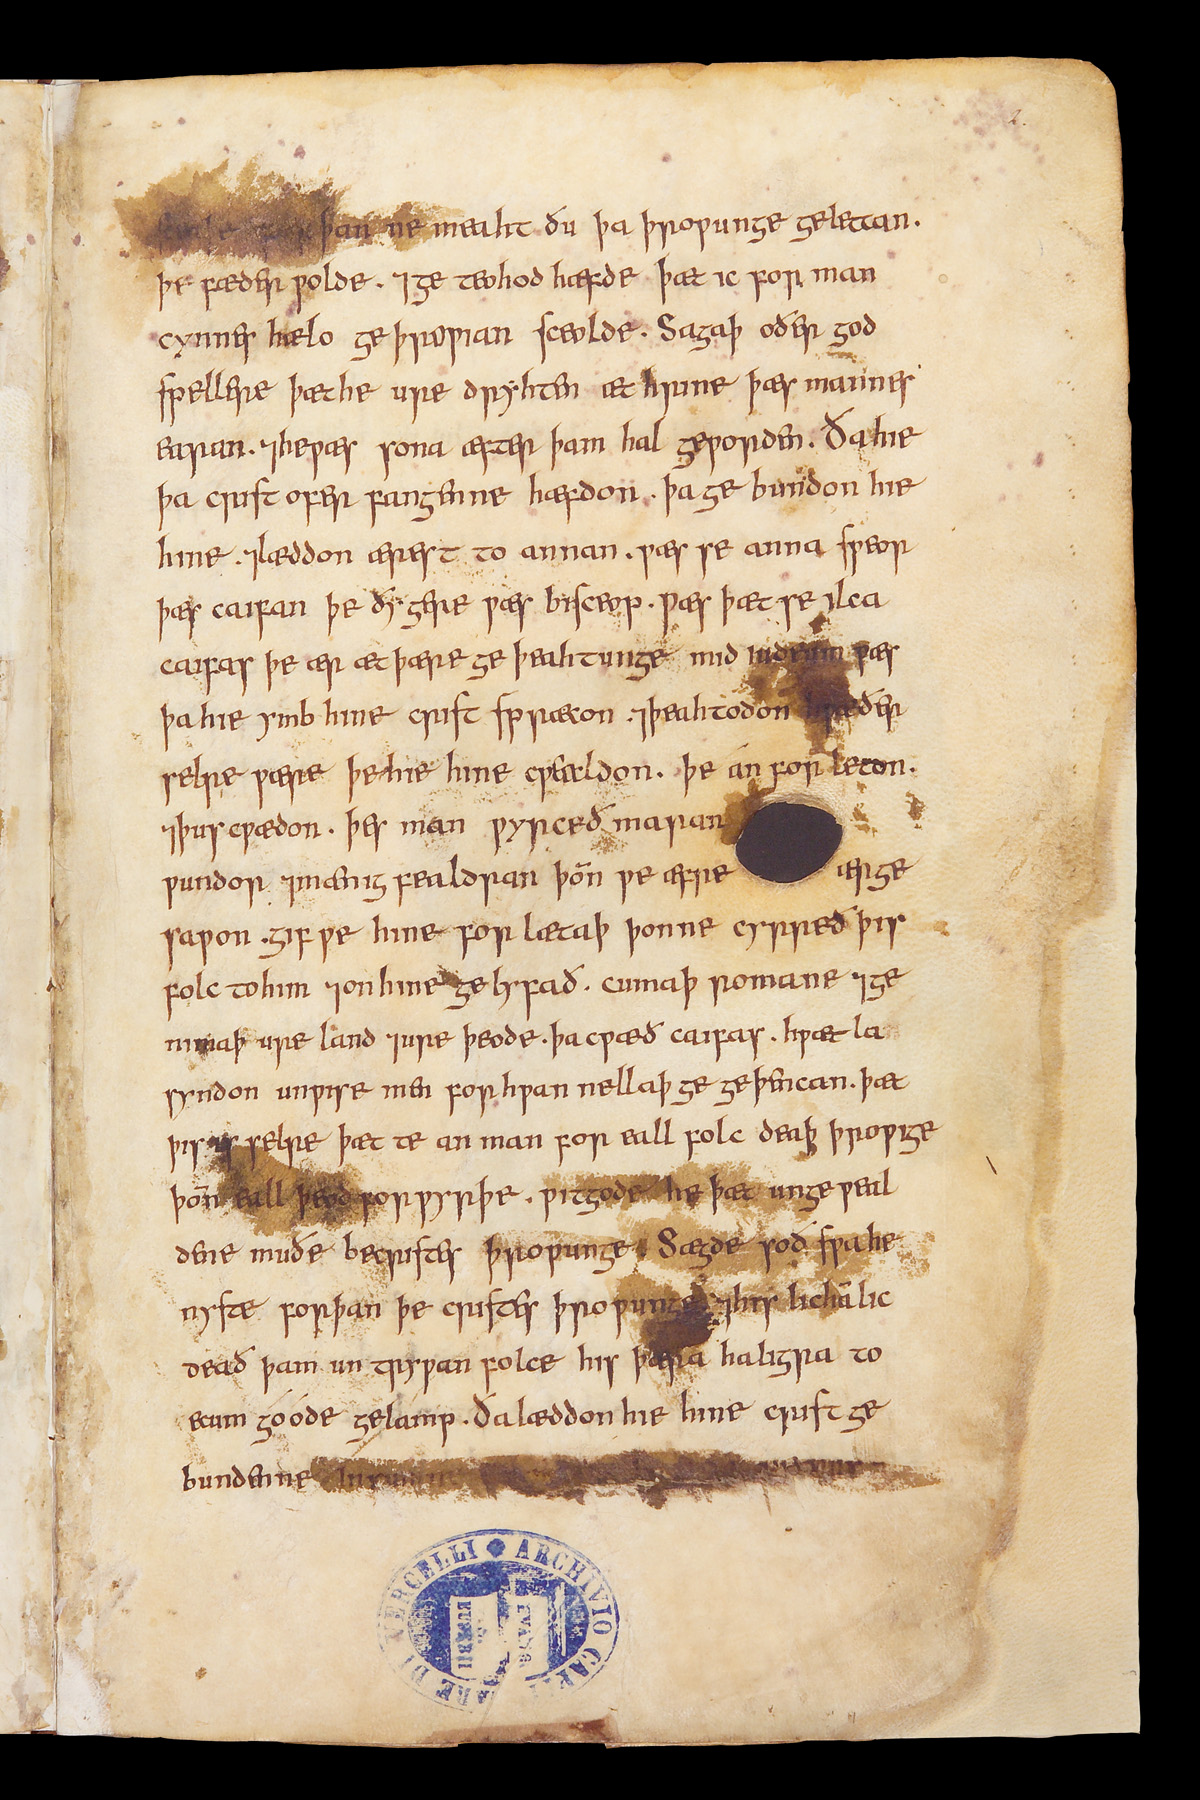 þan ne meaht ðu þa þrowunge gelettan.
þe fæder wolde. ⁊ ge teohod hæfde þæt ic for man
cynnes hælo ge þrowian sceolde. Sagaþ oðer god
spellere þæt he ure dryhten æt hrine þæs mannes
earan. ⁊ he wæs sona æfter þam hal geworden. Ða hie
þa crist ofer fangenne hæfdon. þa ge bundon hie
hine. ⁊ læddon ærest to annan. wæs se anna sweor
þæs caifan þe ðy geare wæs bisceop. wæs þæt se ylca
caifas þe ær æt þære ge þeahtunge mid iudeum wæs
þa hie ymb hine crist spræcon. ⁊ þeahtodon hwæðer
selre wære þe hie hine cwealdon. þe án for leton.
⁊ þus cwædon. þes man wyrceð maran
wundor ⁊ mænig fealdran þoñ we æfre ærge
sawon. gif we hine for lætaþ þonne cyrreð þis
folc to him ⁊ on hine ge lyfað. cumaþ romane ⁊ ge
nimaþ ure land ⁊ ure þeode. þa cwæð caifas. hwæt la
syndon unwise men for hwan nellaþ ge geþencan. þæt
þis is selre þæt te an man for eall folc deaþ þrowige
þoñ eall þeod forwyrþe. witgode he þæt unge weal
dene muðe be cristes þrowunge. Sægde soð swa he
nyste forþan þe cristes þrowunge ⁊ his lichā. lic
deað þam un trywan folce his þæra haligra to
ecum góode gelamp. Ða læddon hie hine crist ge
bundenne
ARCHIVIO CAP RE DI VERCELLI